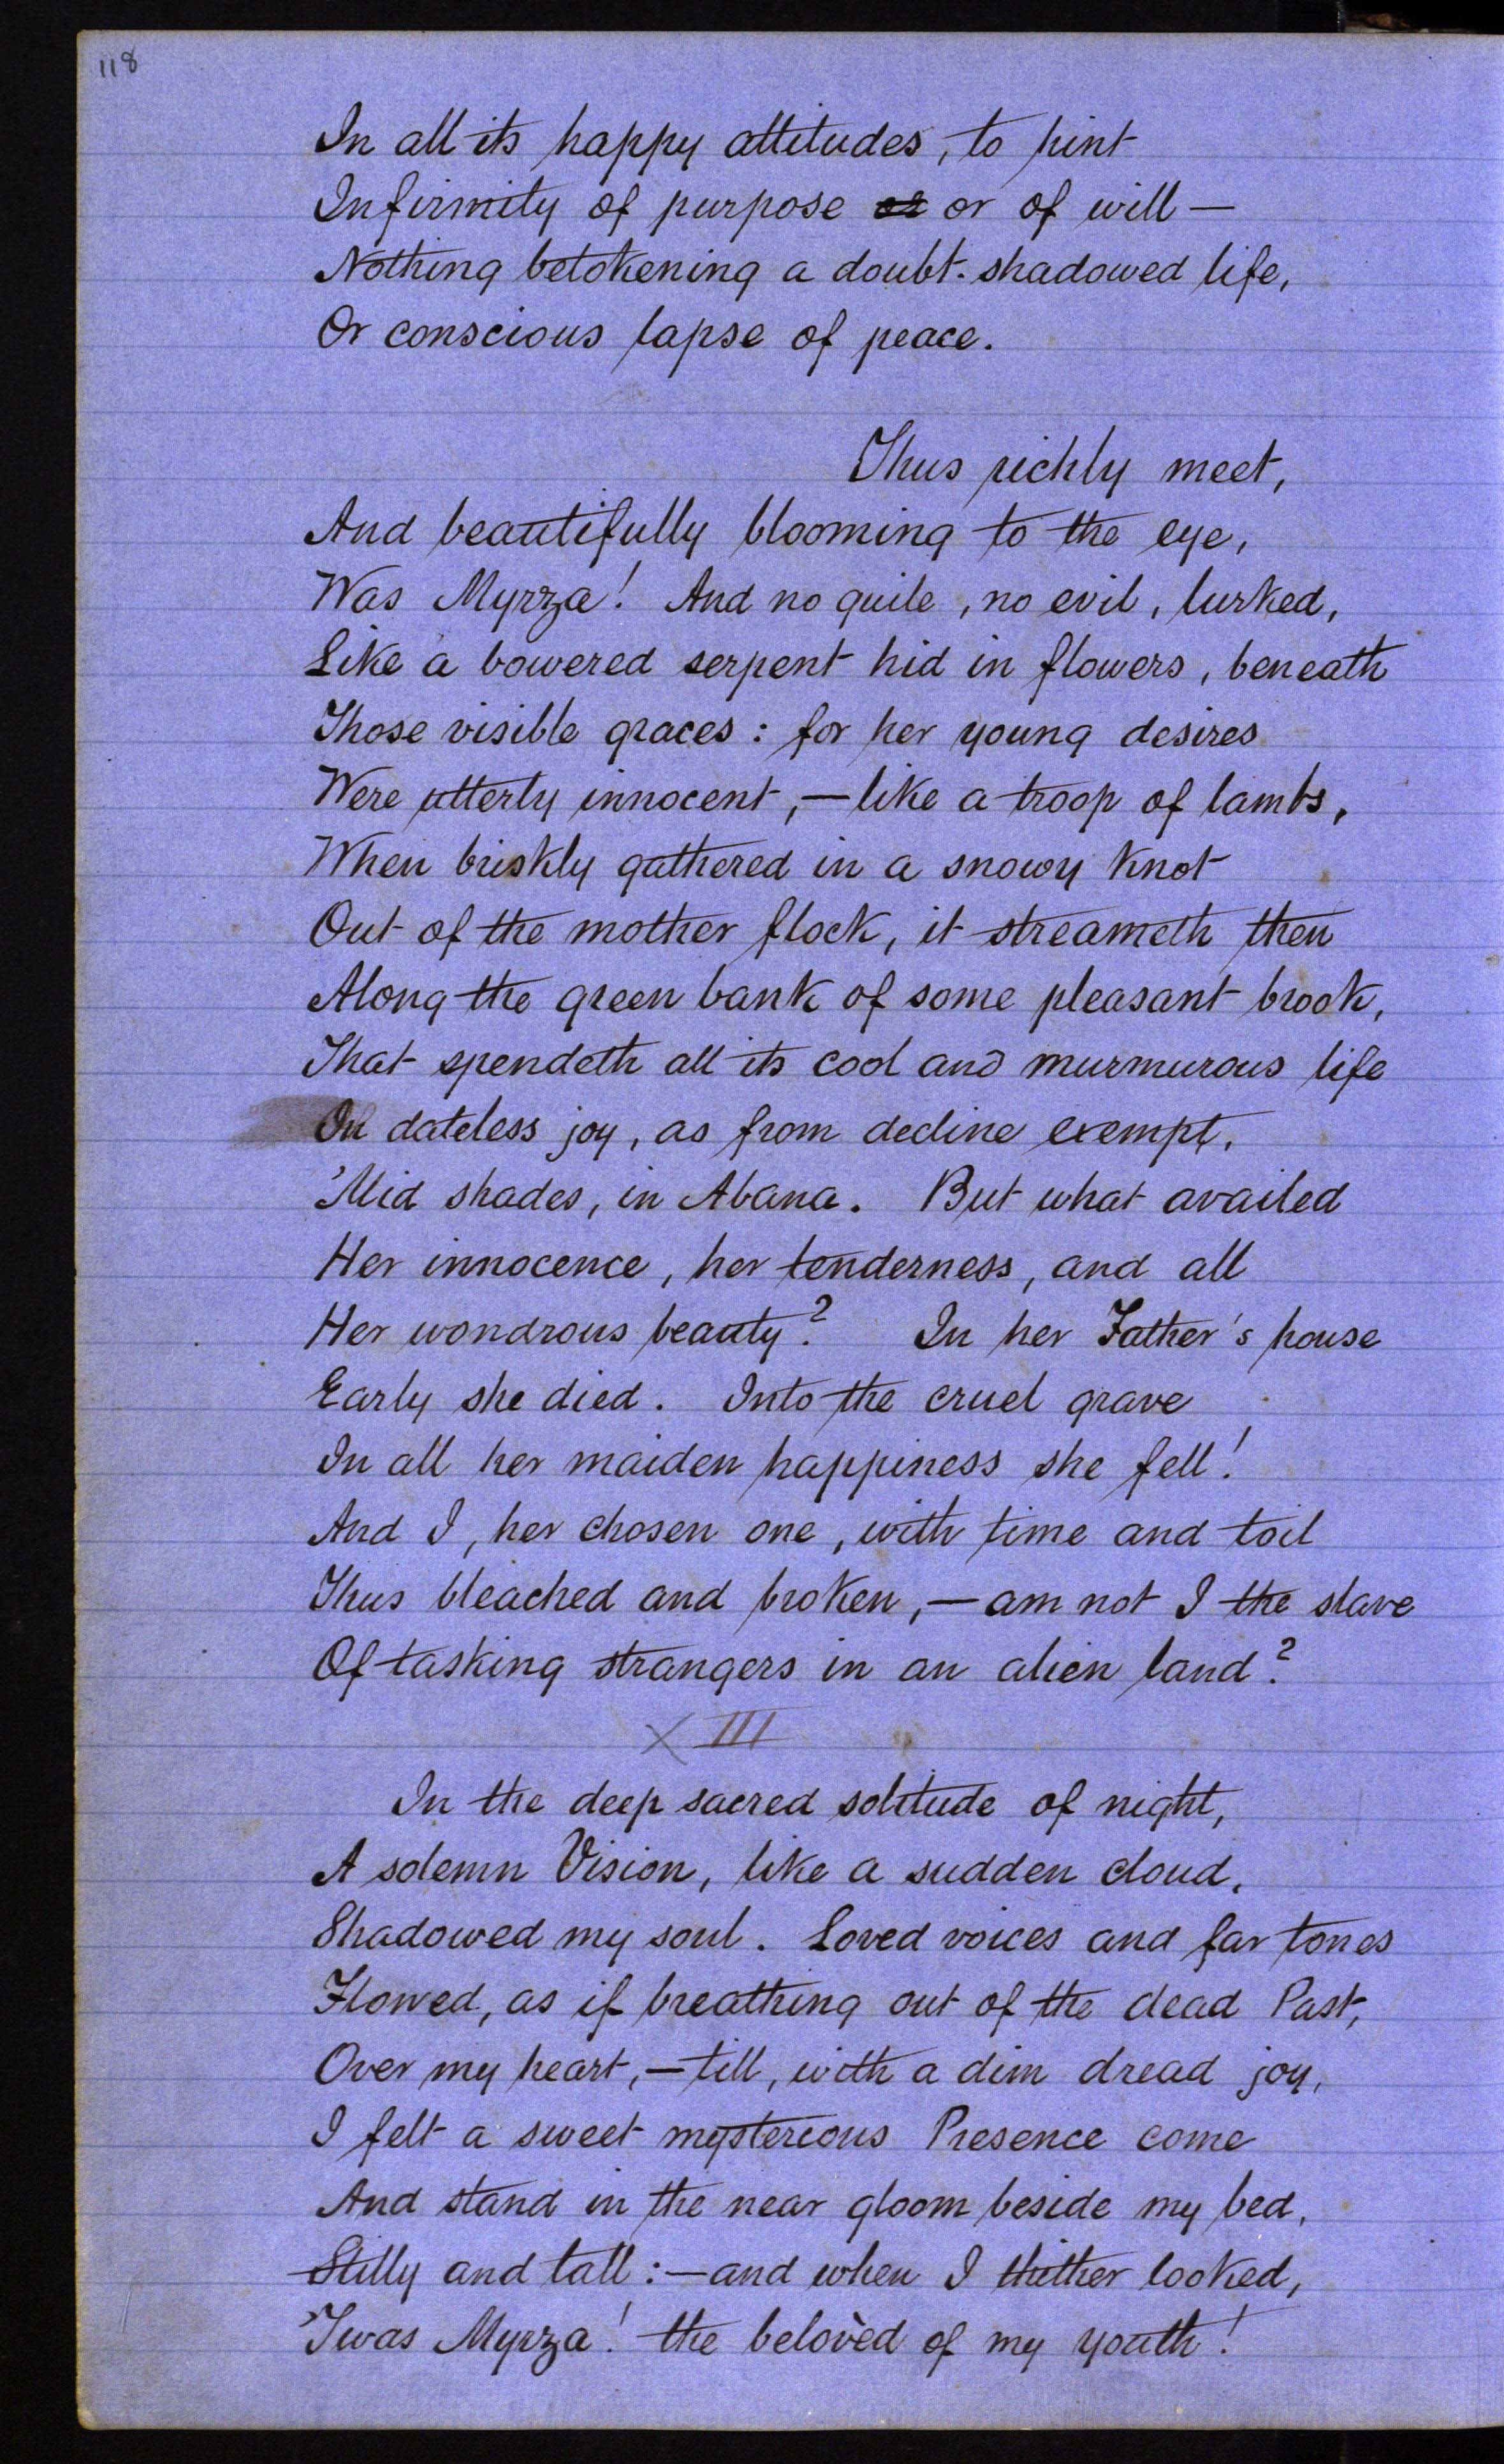 118
In all its happy attitudes, to hint
Infirmity of purpose or of will —
Nothing betokening a doubt-shadowed life,
Or conscious lapse of peace.
Thus richly meet,
And beautifully blooming to the eye,
Was Myrza! And no guile, no evil, lurked,
Like a bowered serpent hid in flowers, beneath
Those visible graces: for her young desires
Were utterly innocent, — like a troop of lambs,
When briskly gathered in a snowy knot
Out of the mother flock, it streameth then
Along the green bank of some pleasant brook,
That spendeth all its cool and murmurous life
In dateless joy, as from decline exempt,
'Mid shades, in Abana. But what availed
Her innocence, her tenderness, and all
Her wondrous beauty? In her Father's house
Early she died. Into the cruel grave
In all her maiden happiness she fell!
And I, her chosen one, with time and toil
Thus bleached and broken, — am not I the slave
Of tasking strangers in an alien land?
X III
In the deep sacred solitude of night,
A solemn Vision, like a sudden cloud,
Shadowed my soul. Loved voices and far tones
Flowed, as if breathing out of the dead Past,
Over my heart, — till, with a dim dread joy,
I felt a sweet mysterious Presence come
And stand in the near gloom beside my bed,
Stilly and tall: — and when I thither looked,
'Twas Myrza! the belovèd of my youth!